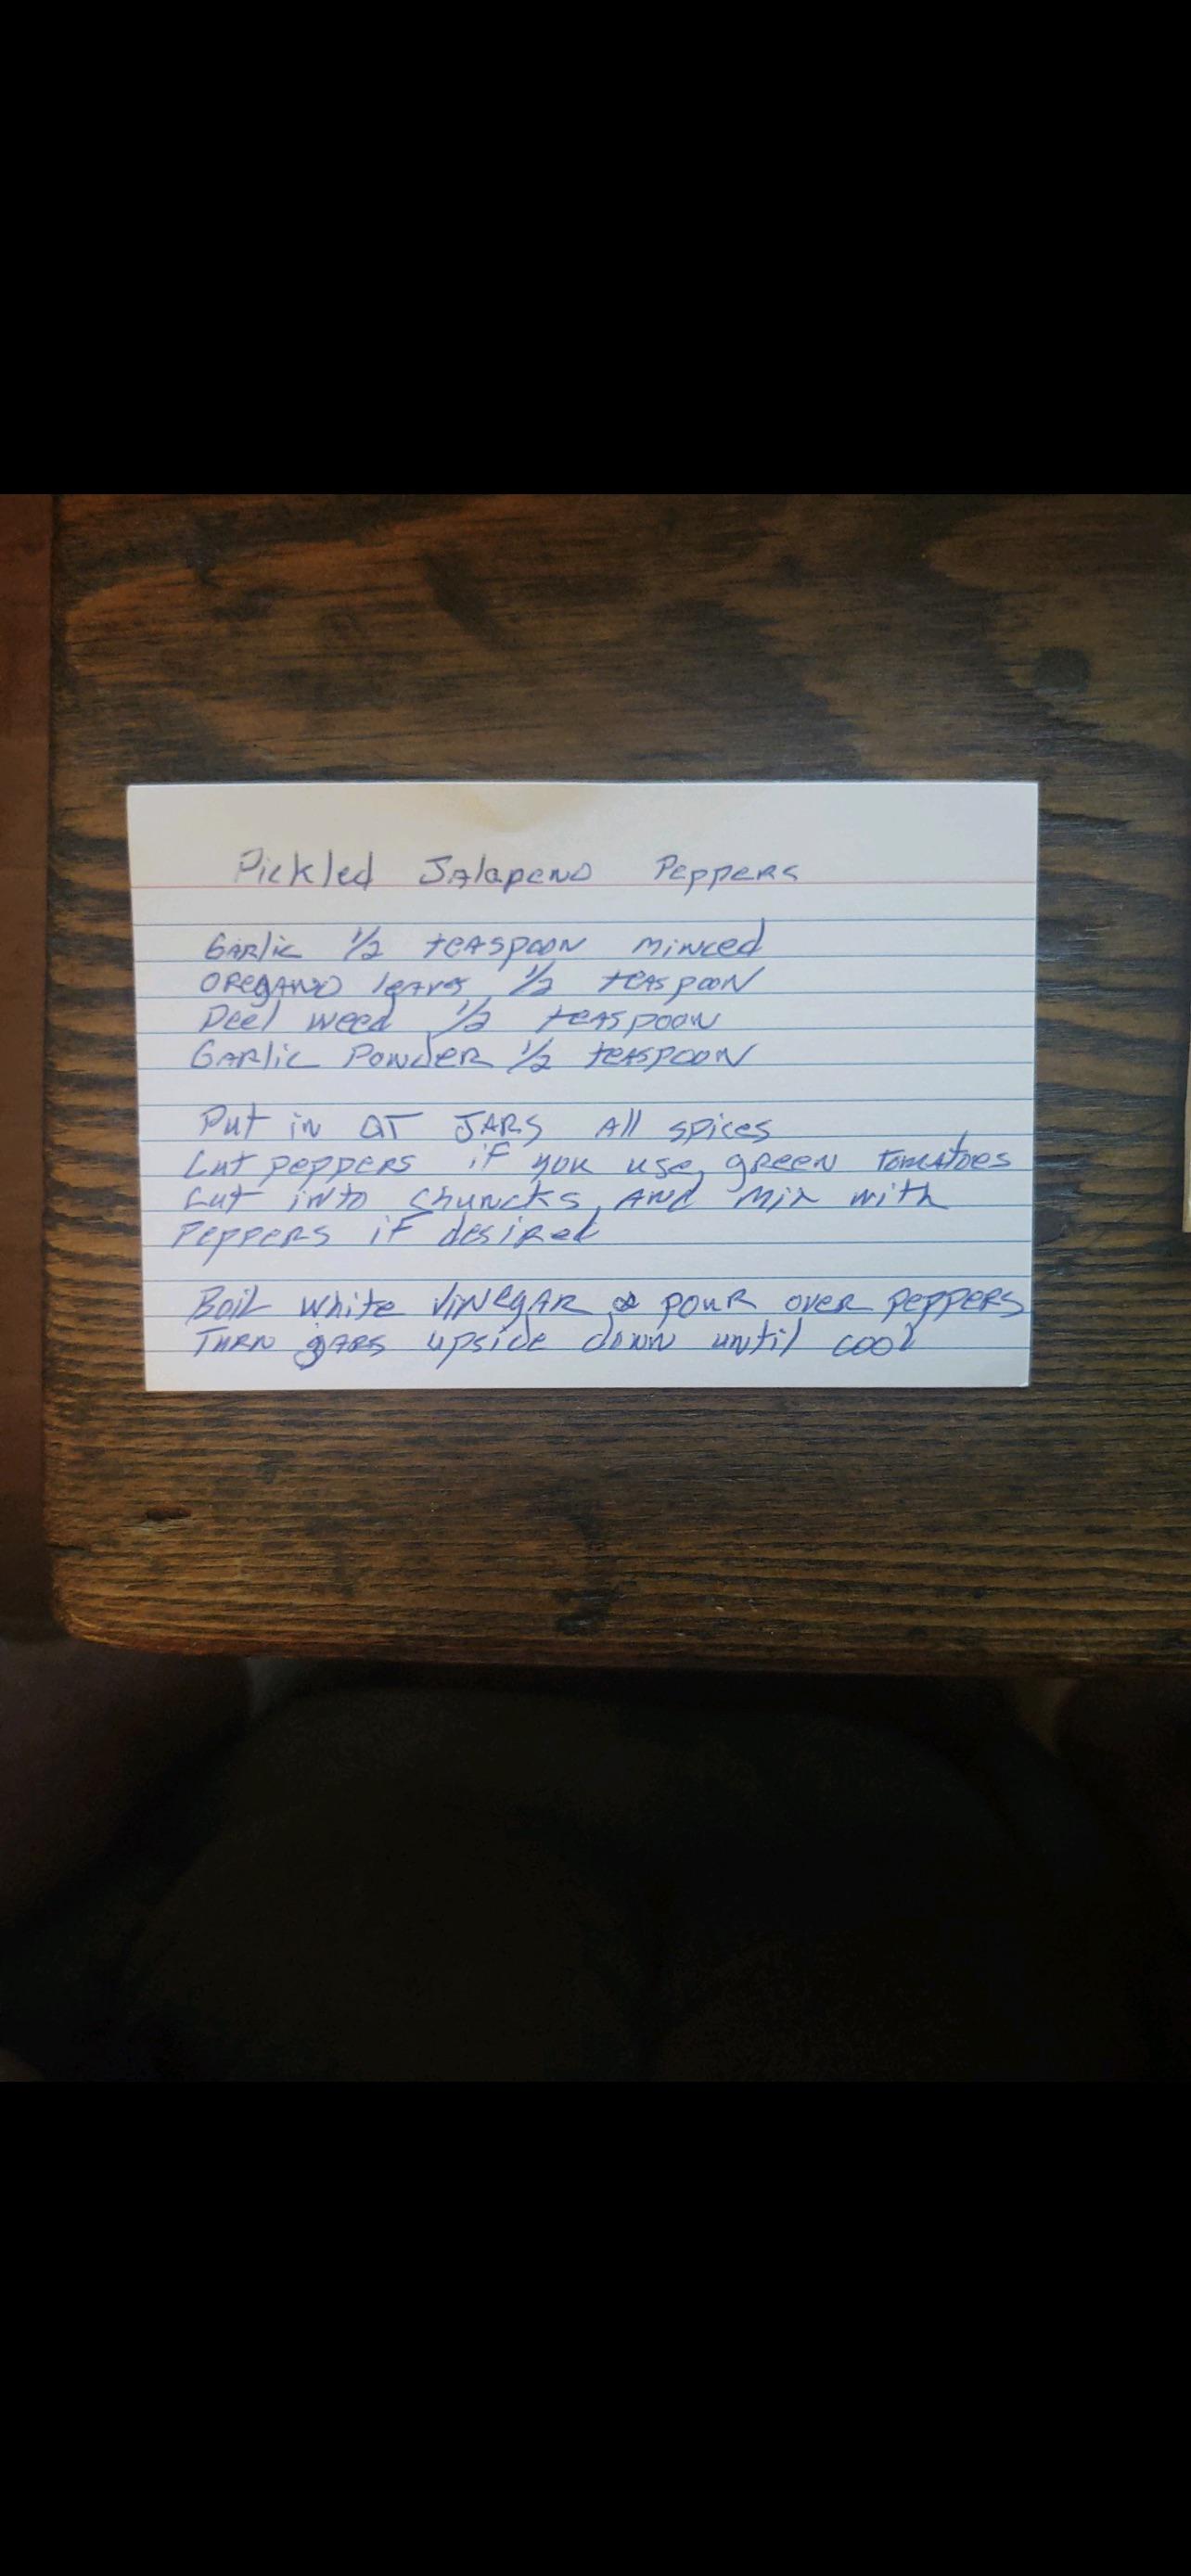 Pickled Jalapeno Peppers
Garlic 1/2 teaspoon minced
Oregano leaves 1/2 teaspoon
Deel weed 1/2 teaspoon
Garlic Powder 1/2 teaspoon
Put in QT JARS All spices
Cut peppers if you use, green tomatoes
Cut into chuncks, and mix with
Peppers if desired
Boil white vinegar & pour over peppers
Turn gars upside down until cool